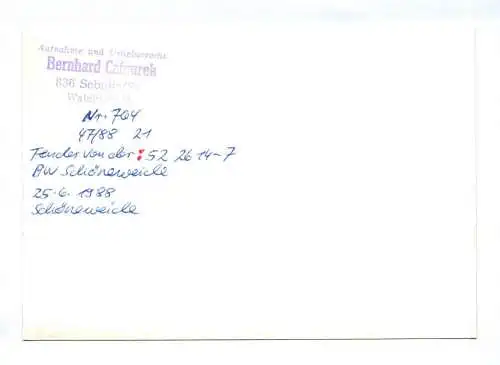 Aufnahme und Urheberrecht
Bernhard
836
Nr. 704
47/88 21
Tender von der: 52 2614-7
BW Schöneweide
25.6.1988
Schöneweide